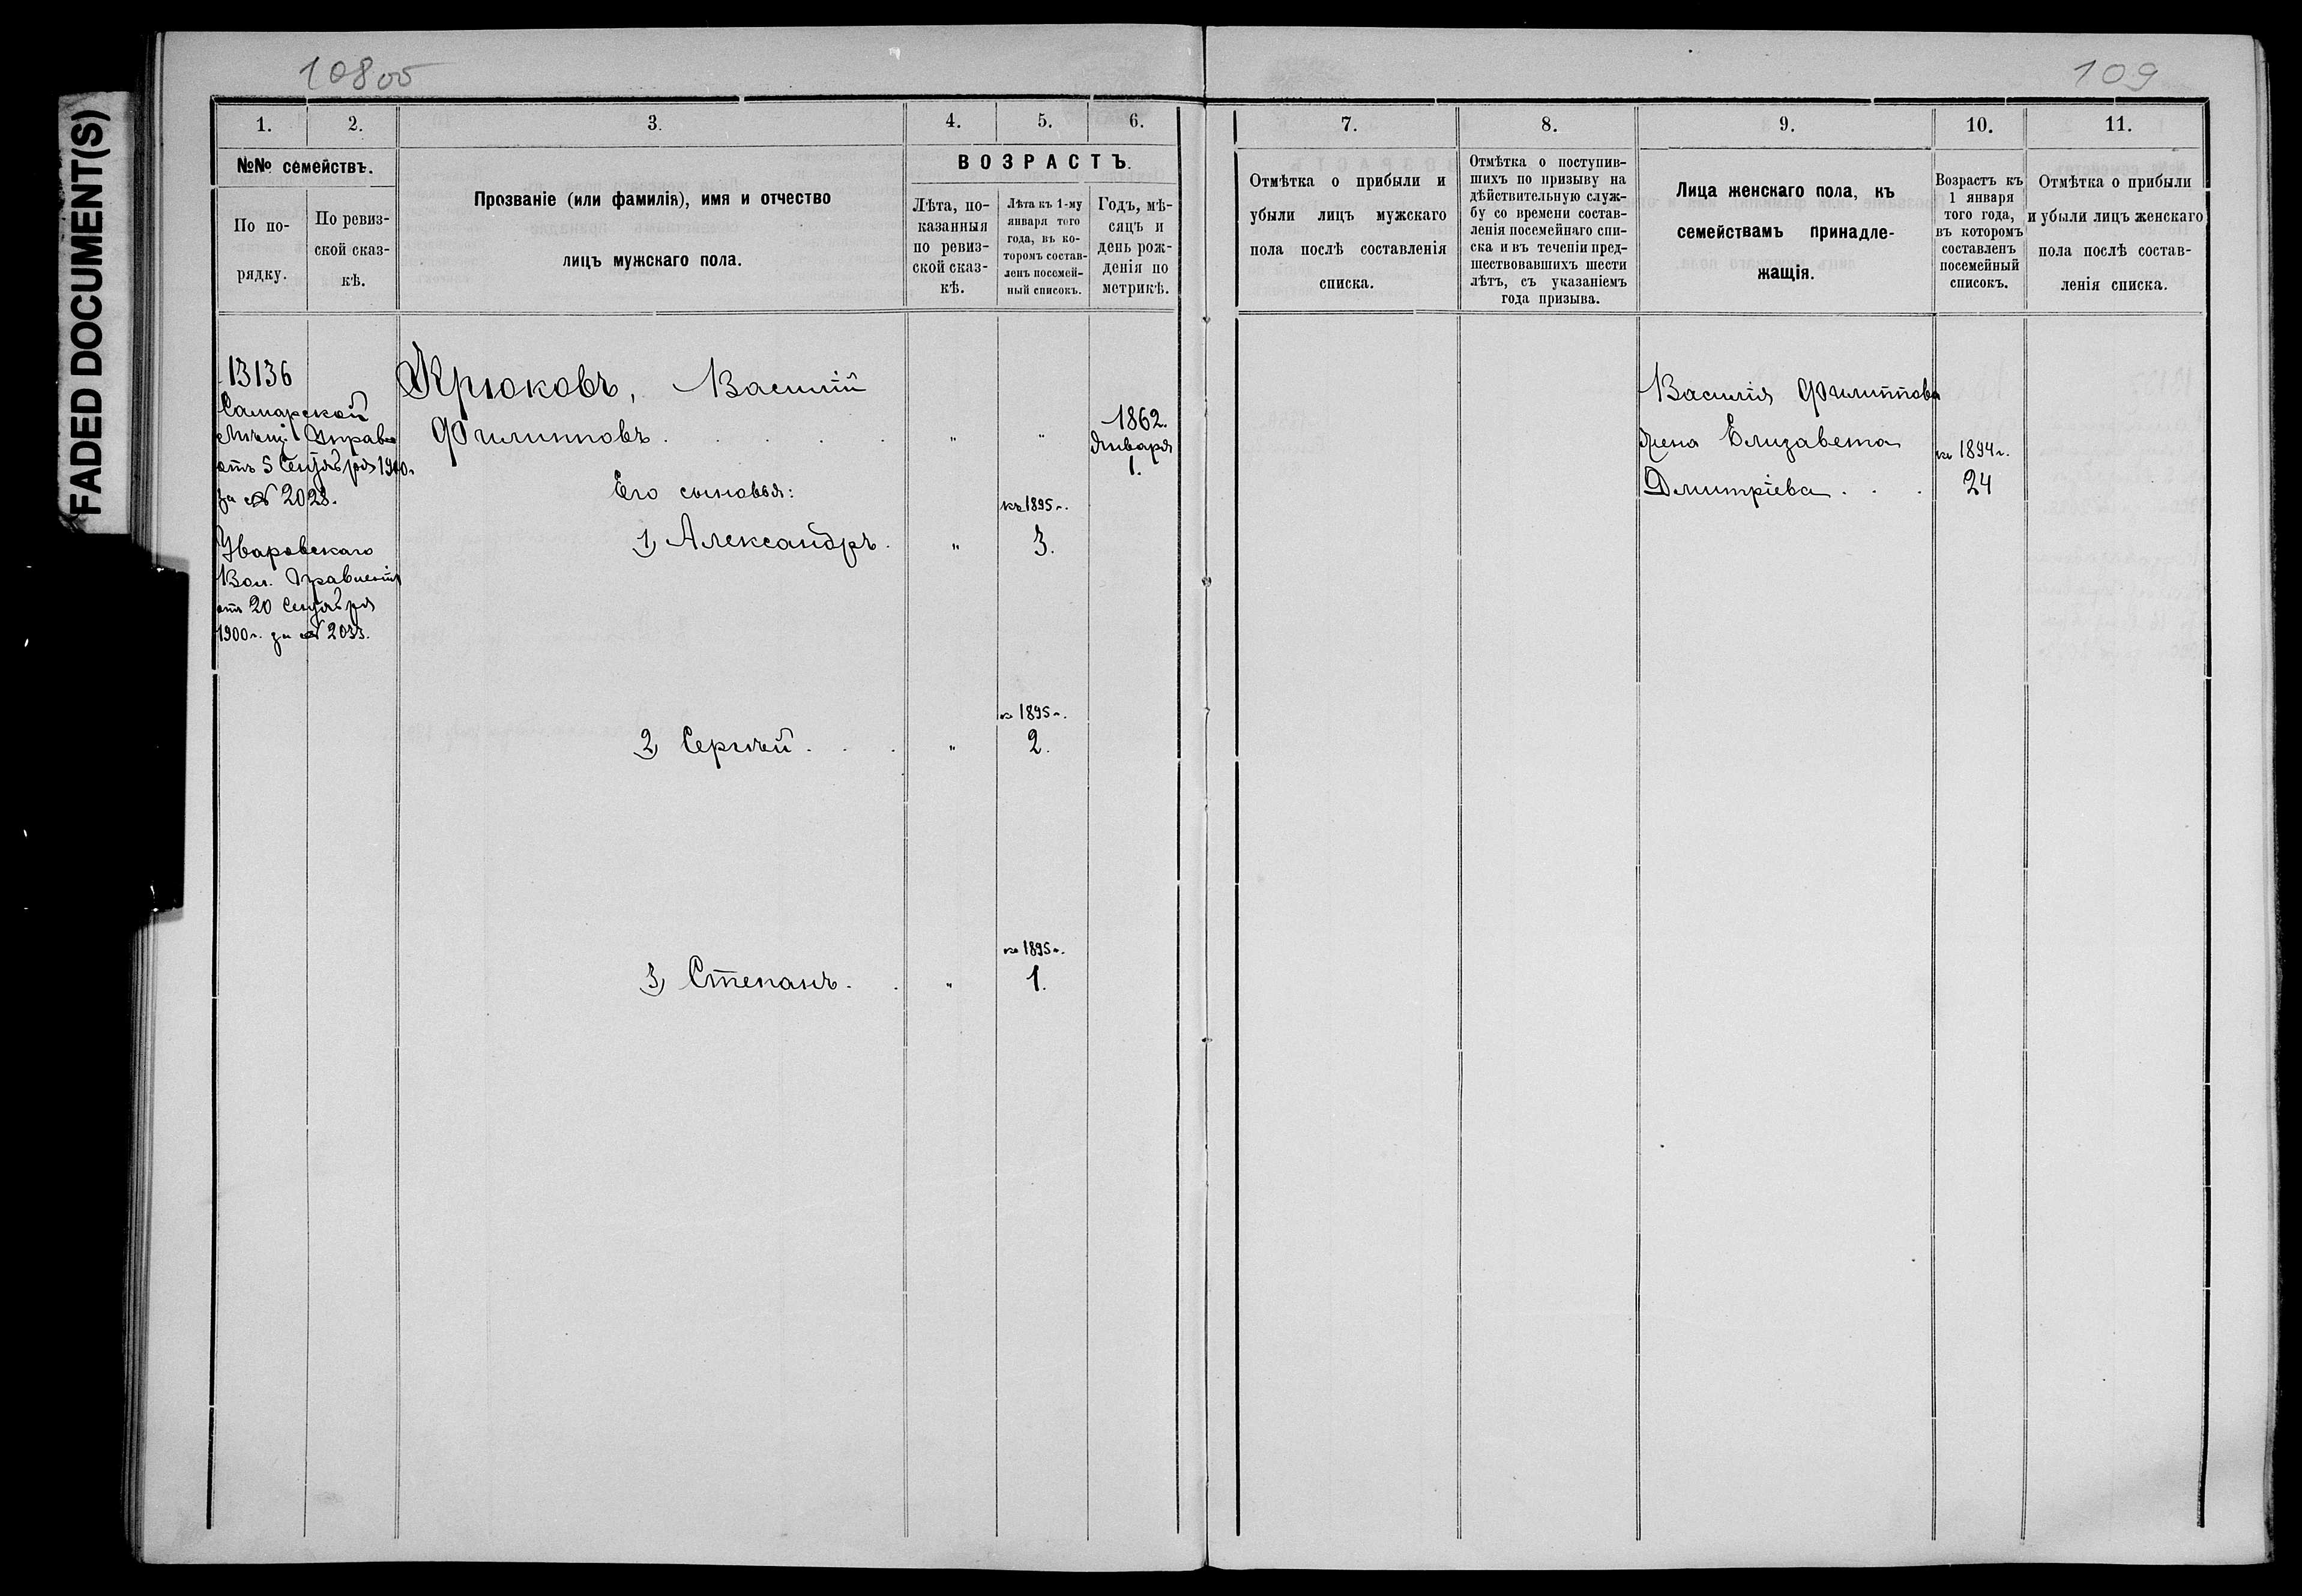 FADED DOCUMENT(S)
108 об
109
1.
2.
3.
4.
5.
6.
№№ семействъ.
По по-
рядку.
По ревиз-
ской сказ-
кѣ.
Прозваніе (или фамилія), имя и отчество
лицъ мужскаго пола.
ВОЗРАСТЪ.
Лѣта, по-
казанныя
по ревиз-
ской сказ-
кѣ.
Лѣта къ 1-му
января того
года, въ ко-
торомъ состав-
ленъ посемей-
ный списокъ.
Годъ, мѣ-
сяцъ и
день рож-
денія по
метрикѣ.
7.
8.
9.
10.
11.
Отмѣтка о прибыли и
убыли лицъ мужскаго
пола послѣ составленія
списка.
Отмѣтка о поступив-
шихъ по призыву на
дѣйствительную служ-
бу со времени состав-
ленія посемейнаго спи-
ска и въ теченіи пред-
шествовавшихъ шести
лѣтъ, съ указаніемъ
года призыва.
Лица женскаго пола, къ
семействамъ принадле-
жащія.
Возрастъ къ
1 января
того года,
въ которомъ
составленъ
посемейный
списокъ.
Отмѣтка о прибыли
и убыли лицъ женскаго
пола послѣ состав-
ленія списка.
13136
Самарской
Мѣщ. Управы
отъ 5 Сентября 1900 г.
за № 2028.
Уваровскаго
Вол. Правленія
отъ 20 Сентября
1900 г. за № 2033.
Крюковъ, Василій
Филипповъ . . . . . " "
1862.
Января
1.
Его сыновья:
къ 1895 г.
1) Александръ. " 3.
къ 1895 г.
2) Сергѣй . . . " 2.
къ 1895 г.
3) Степанъ . . " 1.
Василія Филиппова
жена Елизавета
Дмитріева . . .
къ 1894 г.
24